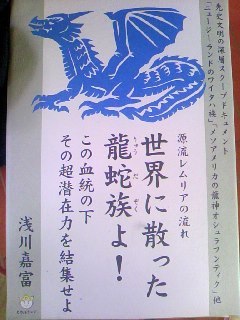 先史文明の深層スクープドキュメント
「ニュージーランドのワイタハ族」「メソアメリカの龍神オシュラブンティク」他
源流レムリアの流れ
世界に散った
龍蛇族よ！
りゅう だ ぞく
この血統の下
その超潜在力を結集せよ
浅川嘉富